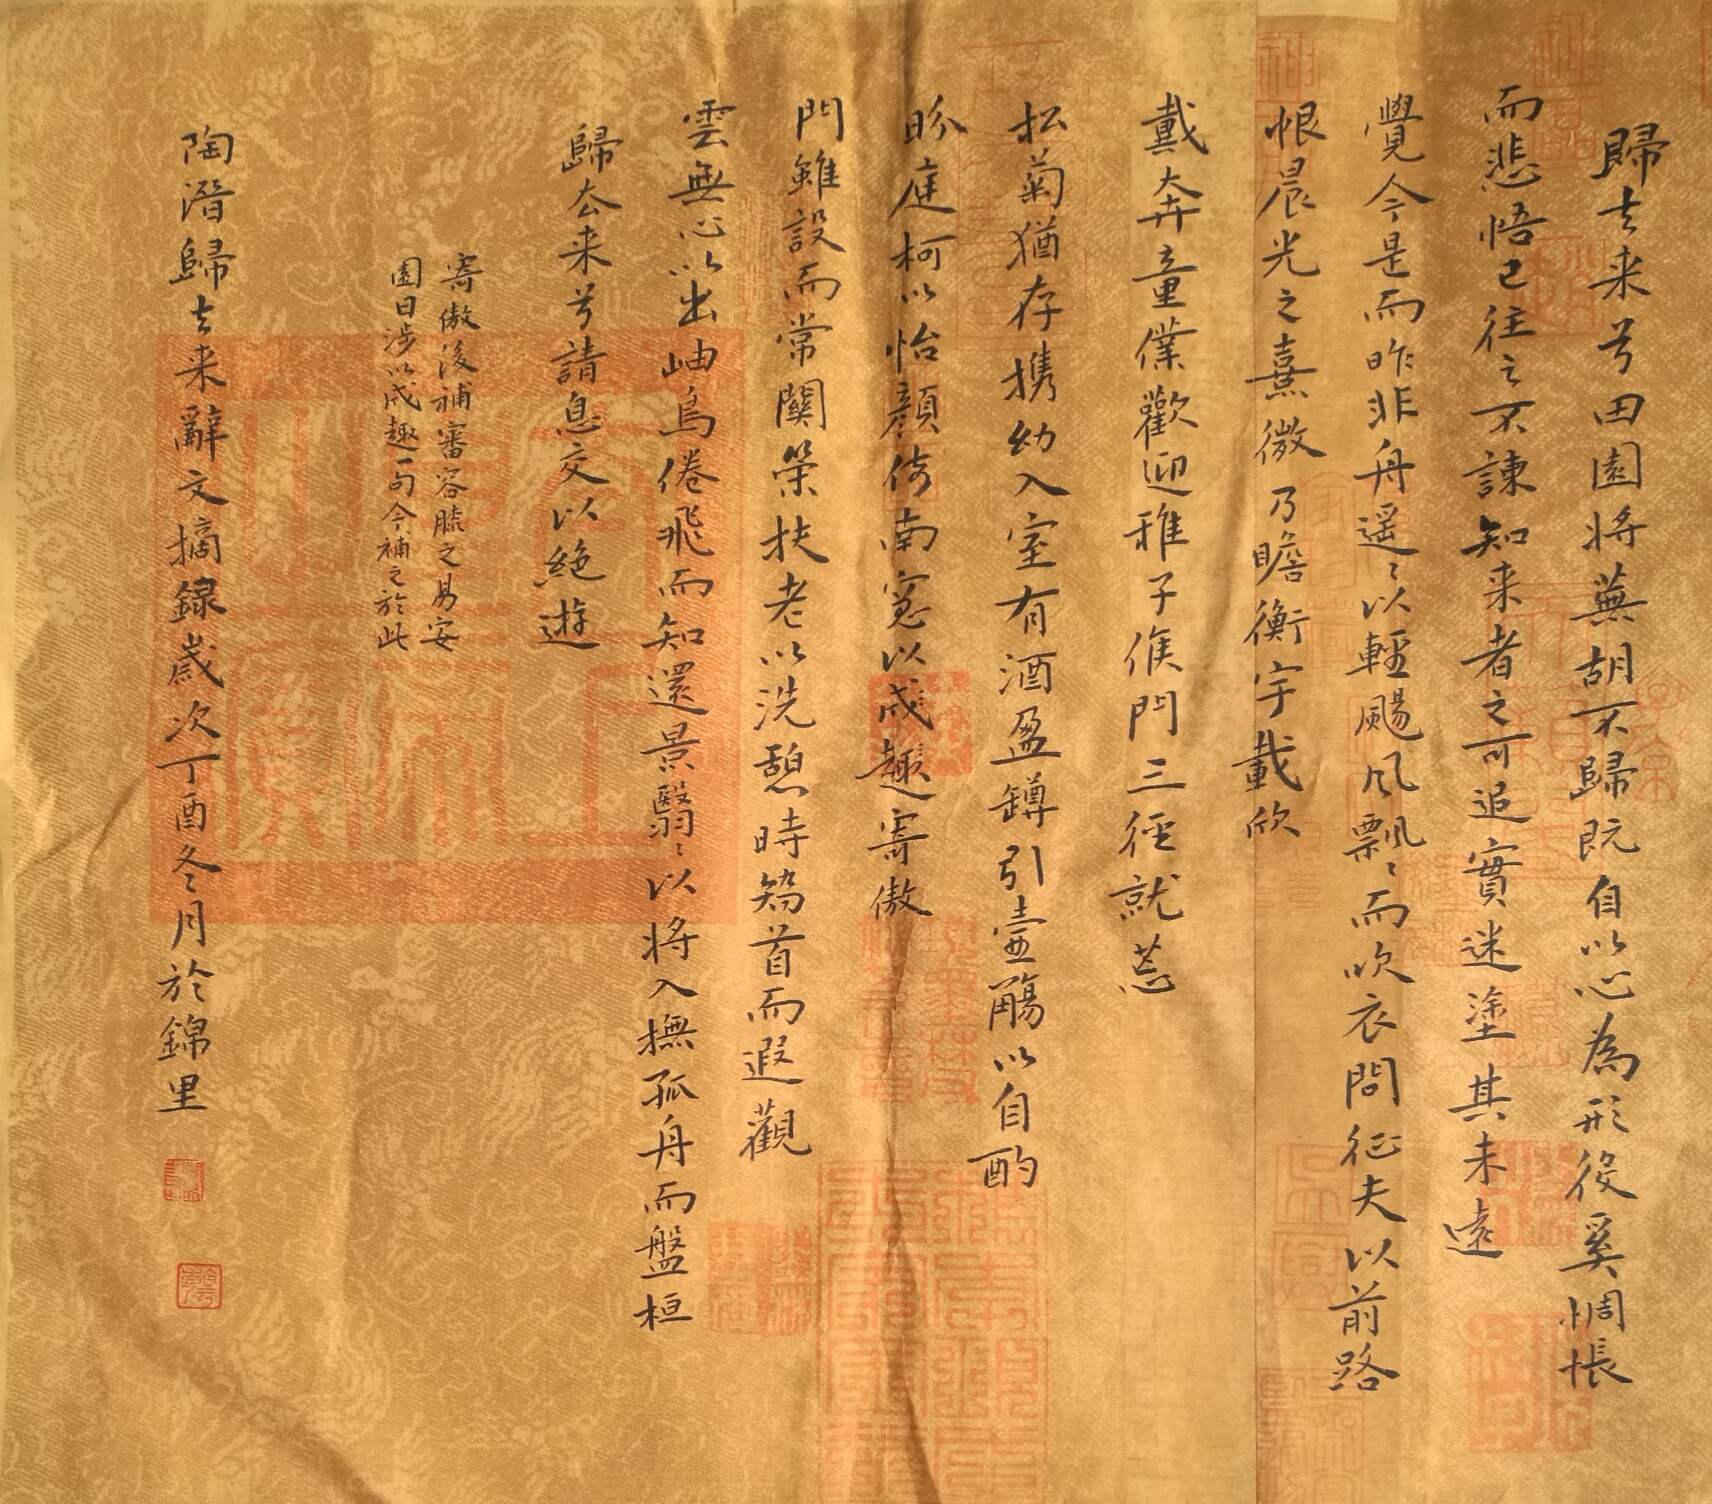 歸去来兮田園将蕪胡不歸既自以心為形役奚惆悵
而悲悟已往之不諫知来者之可追實迷塗其未遠
覺今是而昨非舟遥〻以輕颺风飄〻而吹衣問征夫以前路
恨晨光之熹微乃瞻衡宇載欣
載奔童僕歡迎稚子候門三徑就荒
松菊猶存携幼入室有酒盈罇引壷觴以自酌
眄庭柯以怡顔倚南窓以成趣寄傲
門雖設而常關策扶老以流憩時矯首而遐觀
雲無心以出岫鳥倦飛而知還景翳〻以将入撫孤舟而盤桓
歸去来兮請息交以絶遊
寄傲後補審容膝之易安
園日涉以成趣一句今補之於此
陶潛歸去来辭文摘録歲次丁酉冬月於錦里